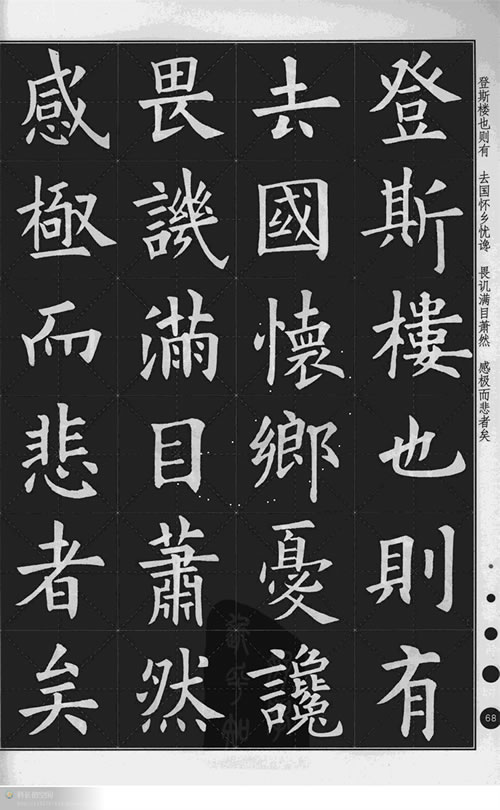 登斯樓也則有
去國懷鄉憂讒
畏譏滿目蕭然
感極而悲者矣
登斯楼也则有 去国怀乡忧谗 畏讥满目萧然 感极而悲者矣
68